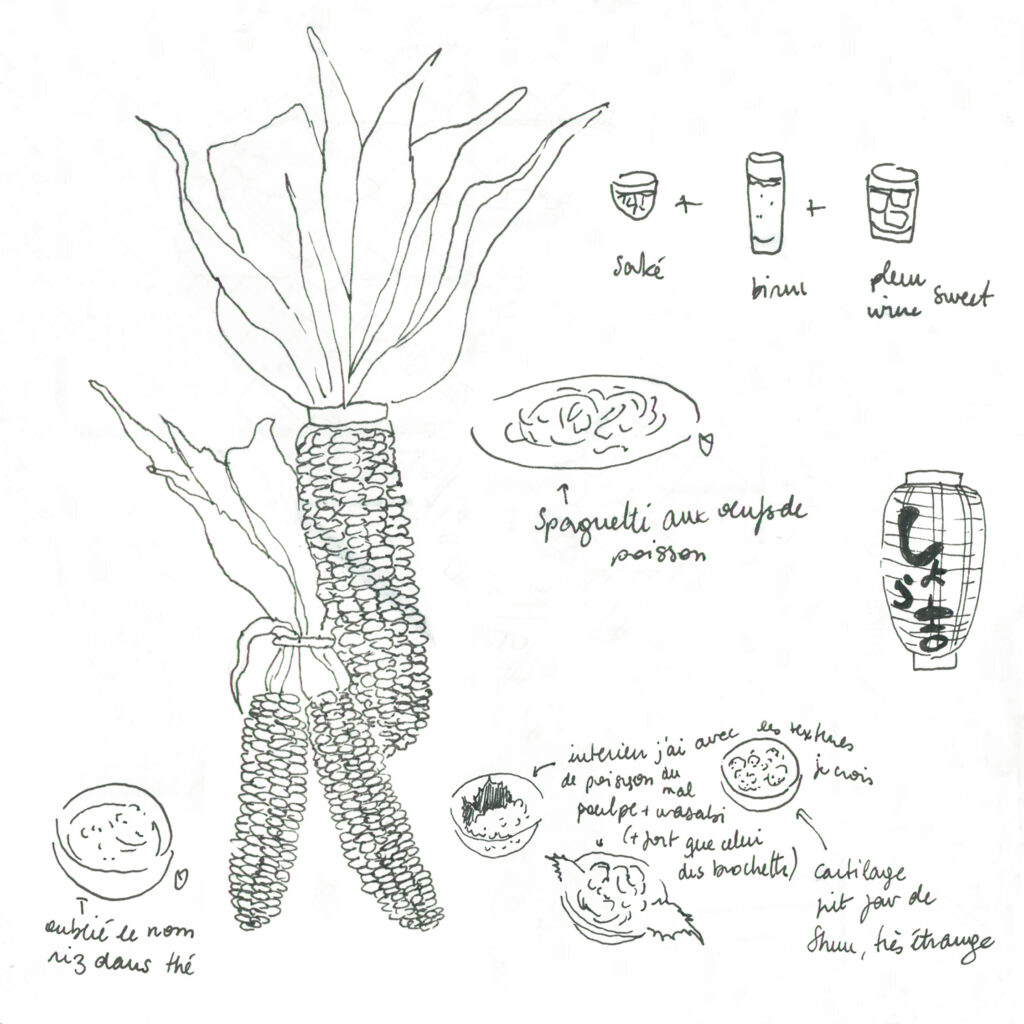 saké
+
biruu
+
plum
wine sweet
Spaguetti aux œufs de
poisson
しょう
interieur j'ai du mal avec les textures
je crois
de poisson
poulpe + wasabi
(+ fort que celui
des brochette)
cartilage
pit par de
Shuu, très étrange
oublié le nom
riz dans thé